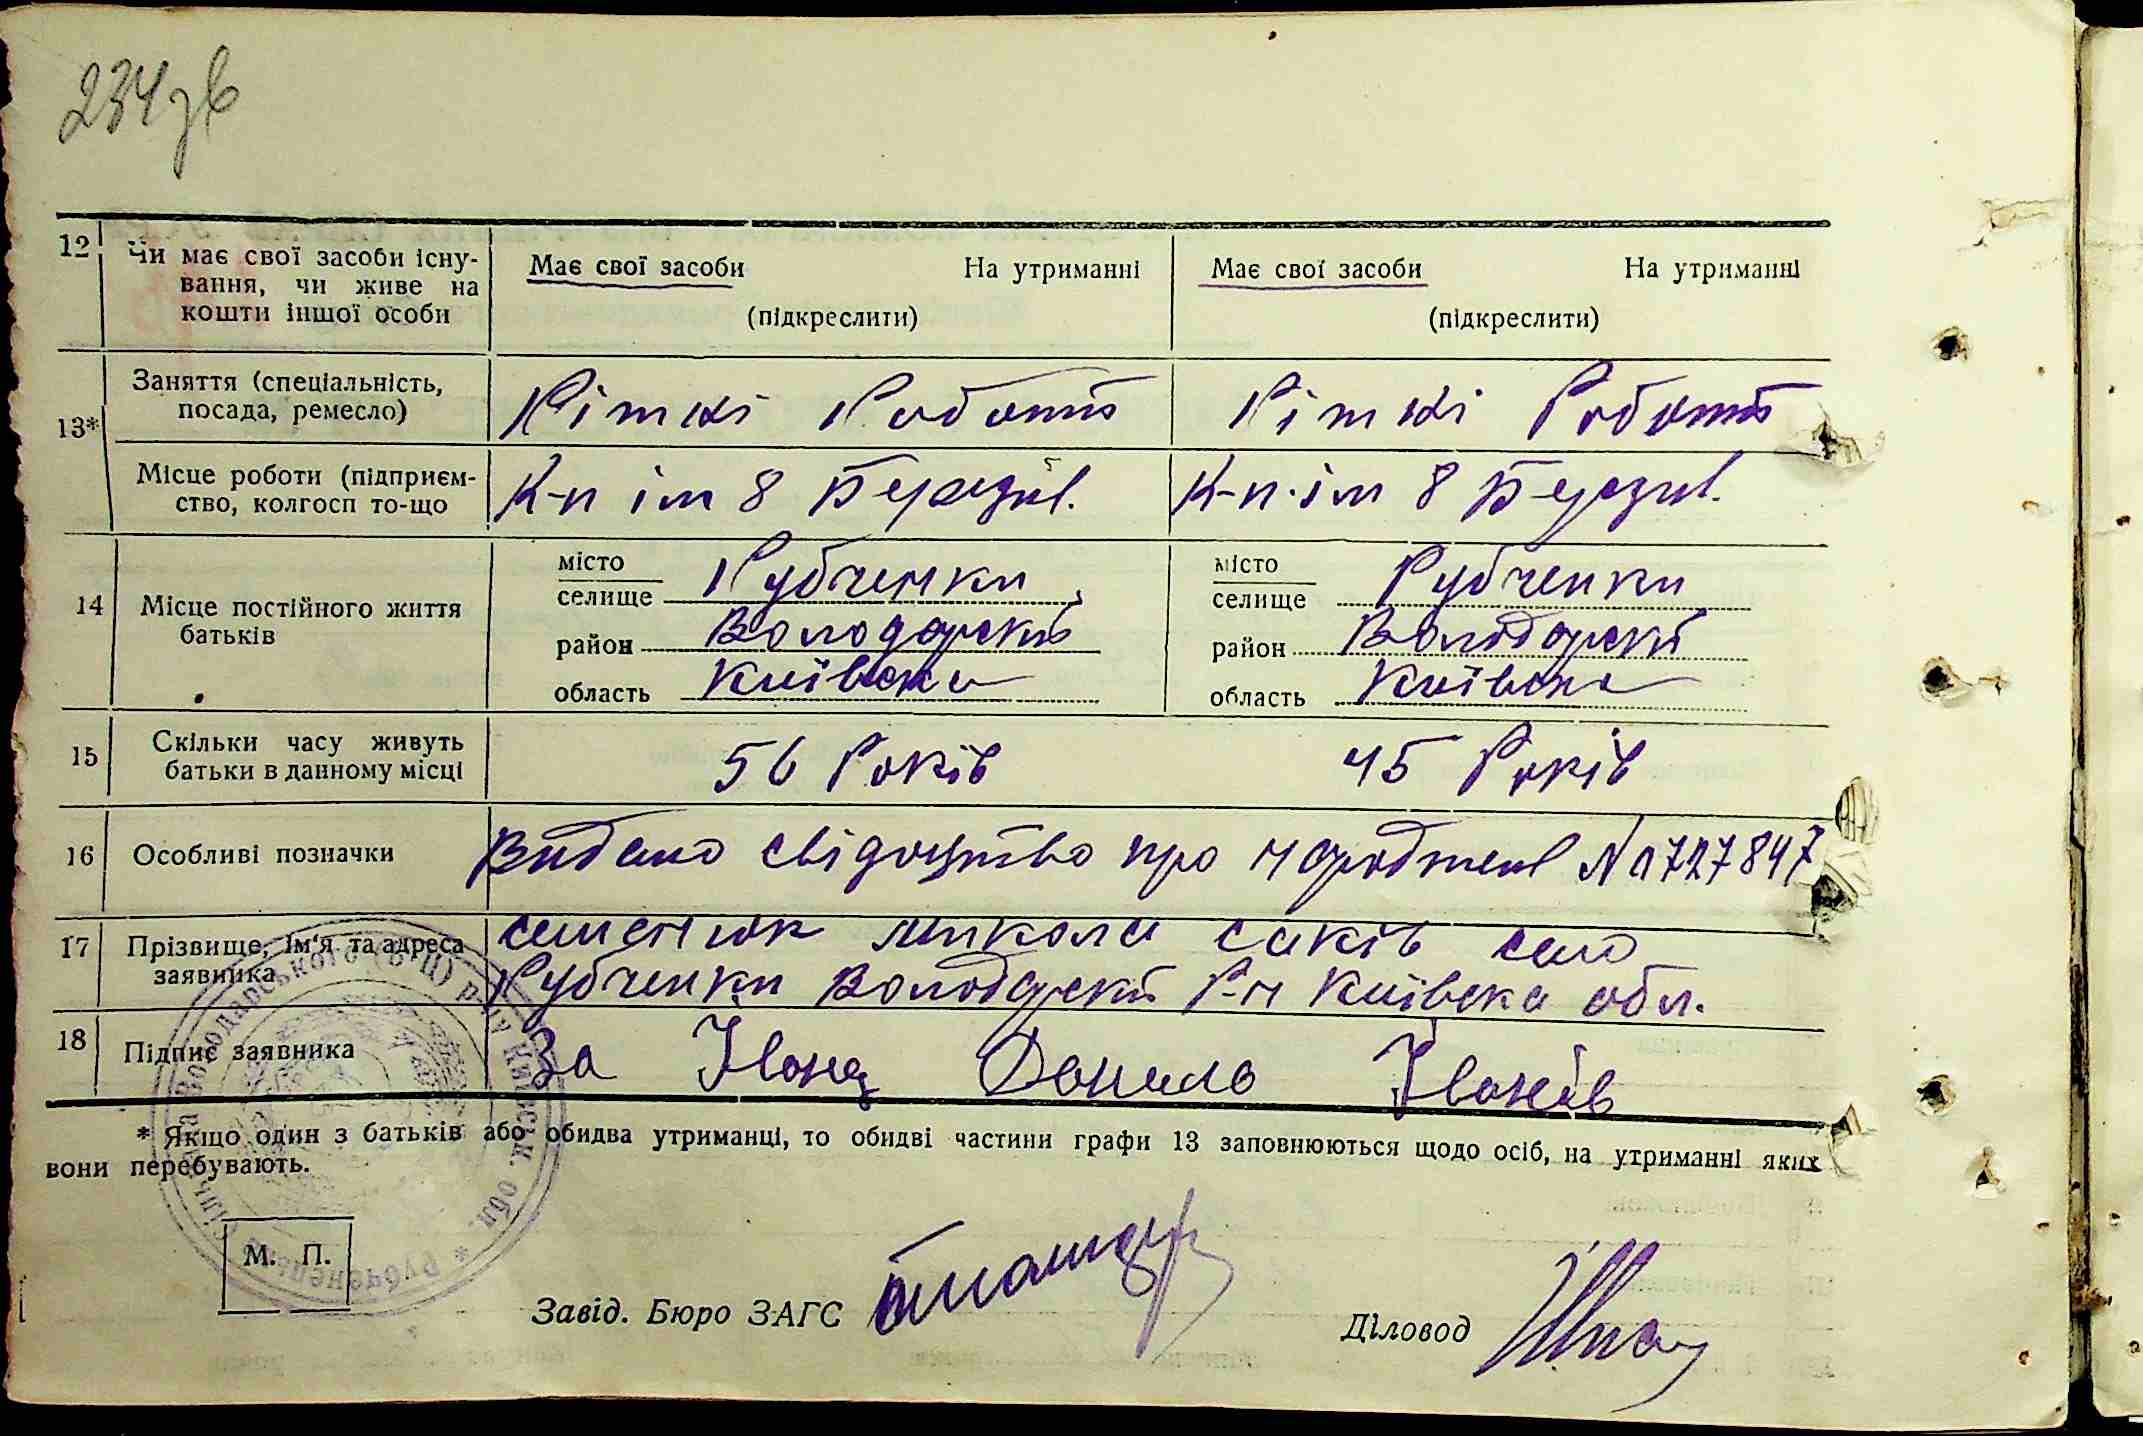 234зв
12 Чи має свої засоби існу-
вання, чи живе на
кошти іншої особи
Має свої засоби На утриманні
(підкреслити)
Має свої засоби На утриманні
(підкреслити)
13* Заняття (спеціальність,
посада, ремесло)
Рітні Роботи
Рітні Роботи
Місце роботи (підприєм-
ство, колгосп то-що
К-п ім 8 Березня.
К-п. ім 8 Березня.
14 Місце постійного життя
батьків
місто
селище Рубченки
район Володарский
область Київска
місто
селище Рубченки
район Володарский
область Київска
15 Скільки часу живуть
батьки в данному місці
56 Років
45 Років
16 Особливі позначки
Видано свідоцтво про народжен № 727847
17 Прізвище, ім'я та адреса
заявника
семенюк микола саків село
Рубченки Володарский Р-н Київска обл.
18 Підпис заявника
За Івонец Данило Іванів
* Якщо один з батьків або обидва утриманці, то обидві частини графи 13 заповнюються щодо осіб, на утриманні яких
вони перебувають.
М. П.
Володарського (Б-Ц) р-ну Київськ. обл. * Рубченецьк
Завід. Бюро ЗАГС
Діловод